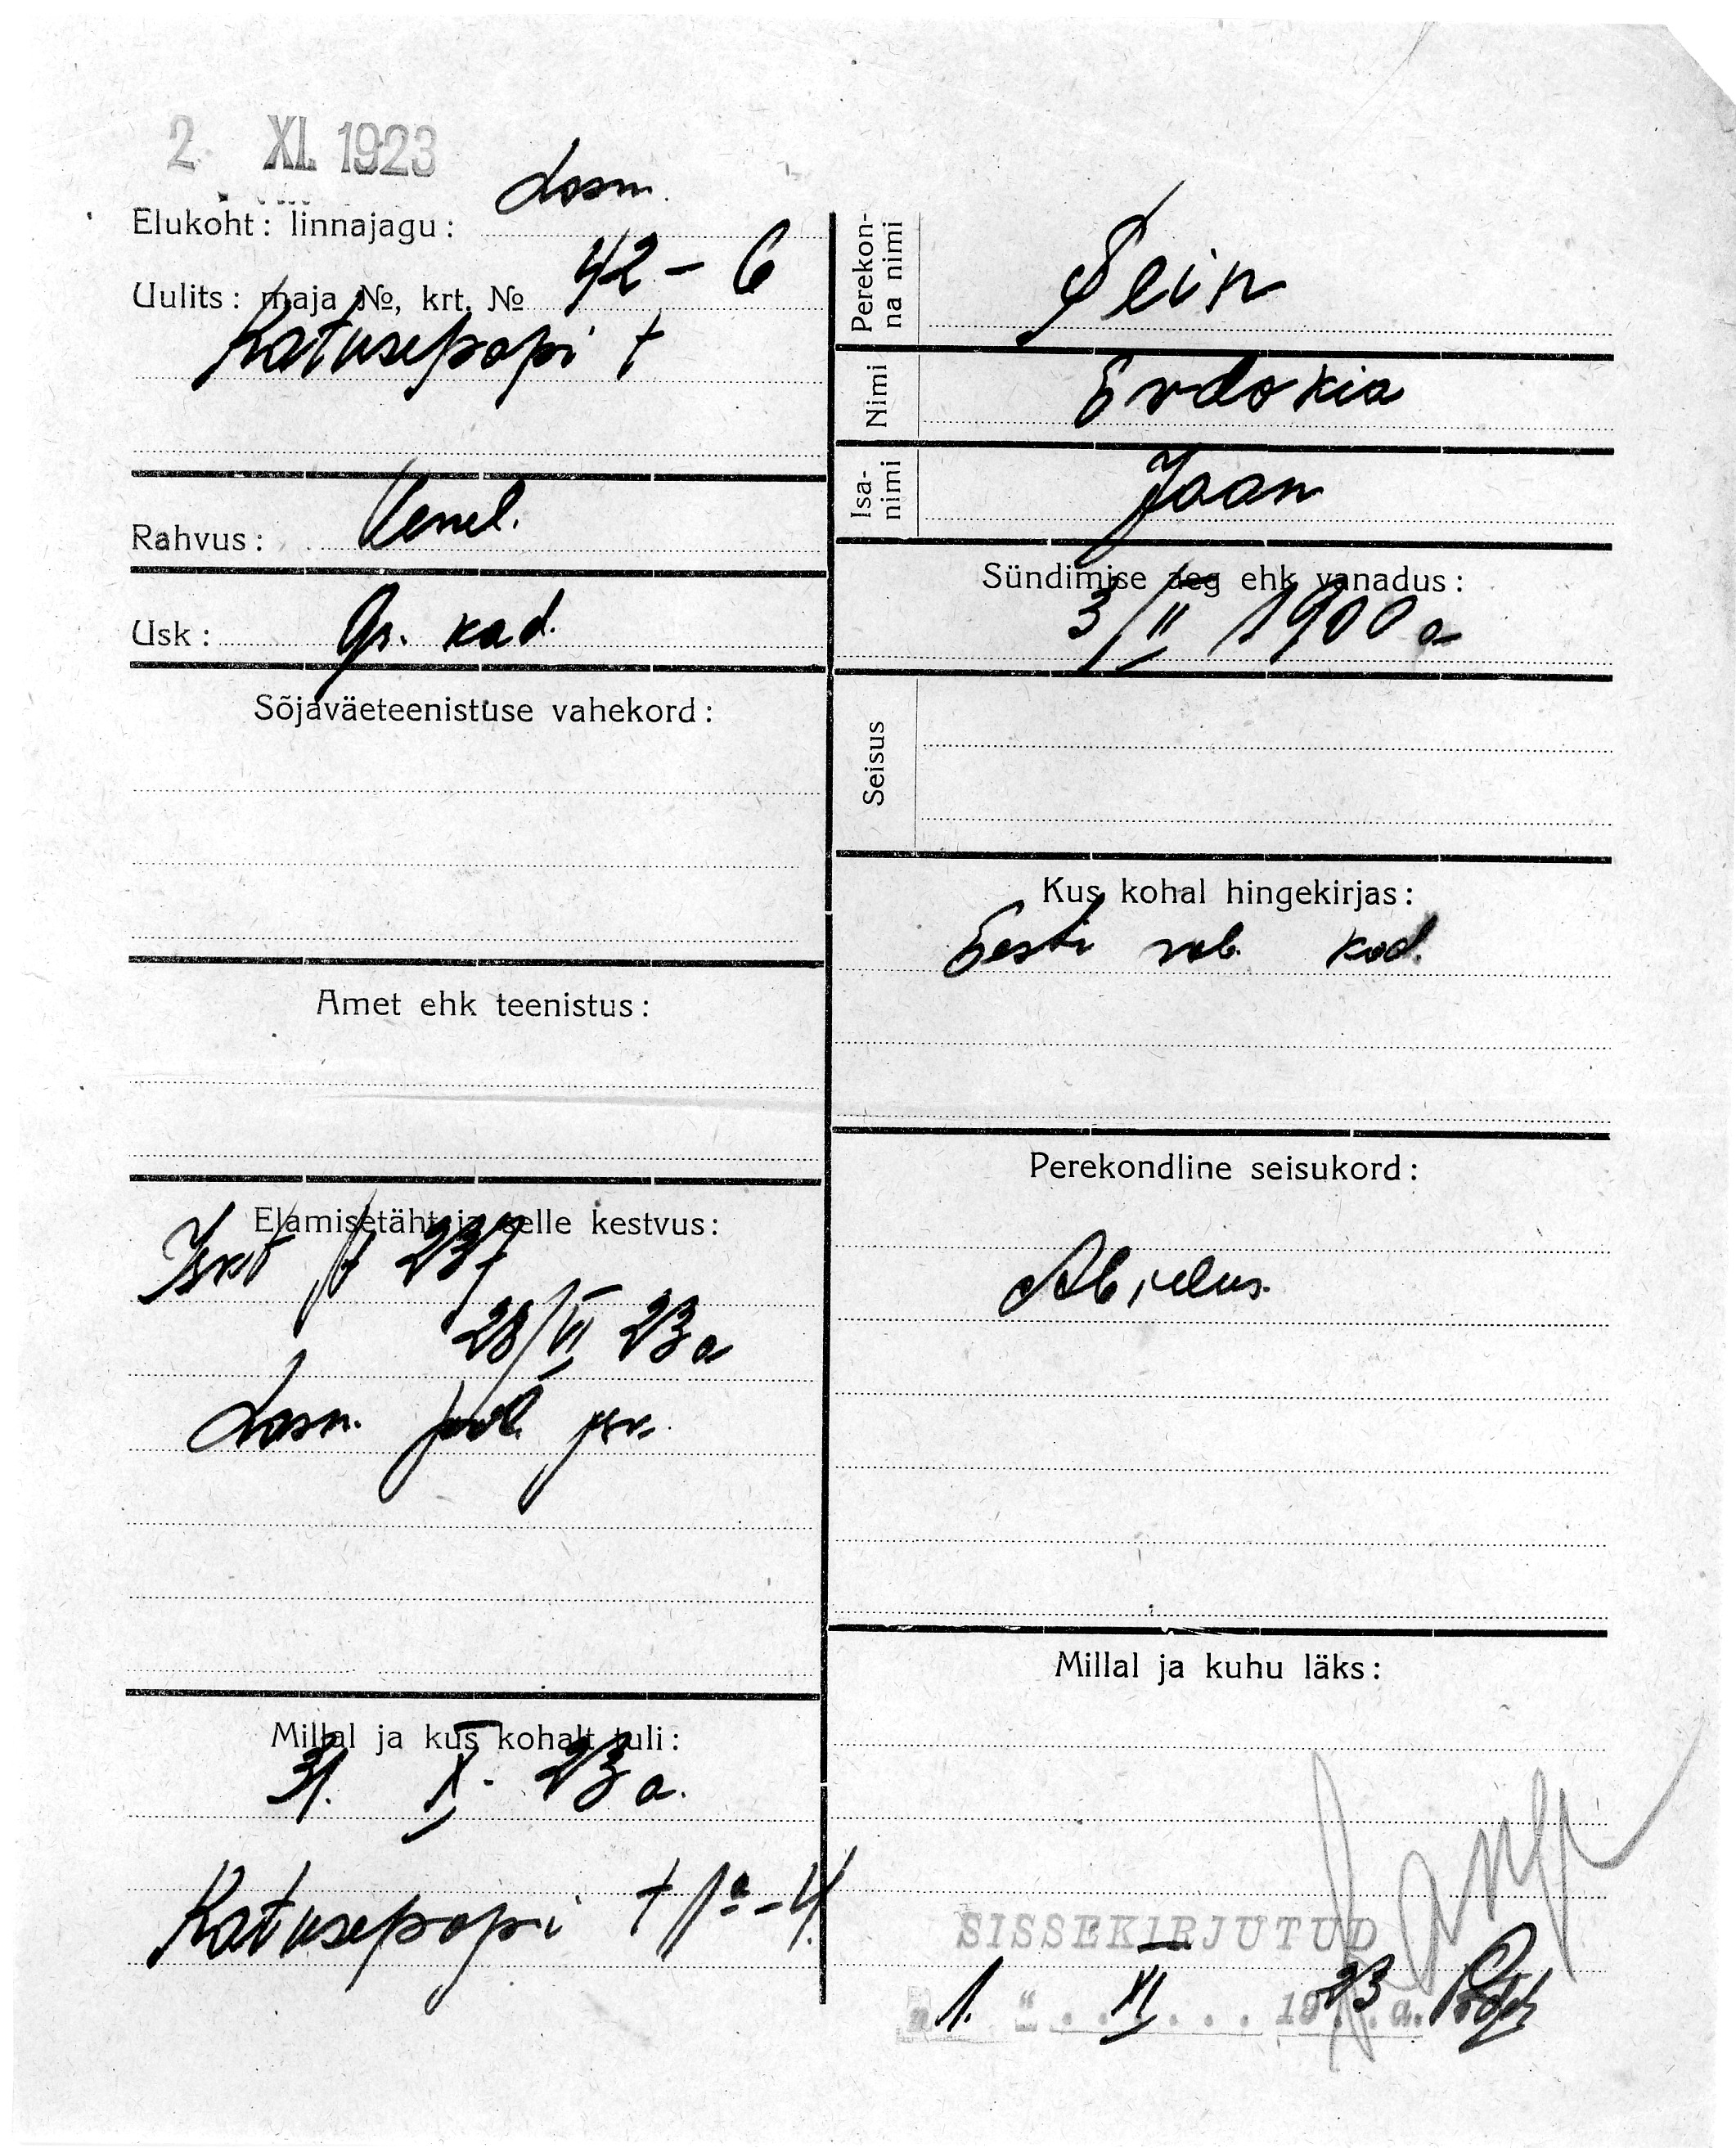 2 XI. 1923
Elukoht: linnajagu: Lasn.
Uulits: maja №, krt. № 42 – 6
Katusepapi t
Rahvus: Venel.
Usk: Gr. kad.
Sõjaväeteenistuse vahekord:
Amet ehk teenistus:
Elamisetäht ja selle kestvus:
Isvt № 237
28/VI 23 a
Lasn. jsk.
Millal ja kus kohalt tuli:
31. X. 23 a.
Katusepapi t 1ª–4.
Perekonna nimi
Pein
Nimi
Evdokia
Isanimi
Jaan
Sündimise aeg ehk vanadus:
3/II 1900 a
Seisus
Kus kohal hingekirjas:
Eesti vab. kod.
Perekondline seisukord:
Abielus.
Millal ja kuhu läks:
SISSEKIRJUTUD
„ 1. “ XI 1923 a.